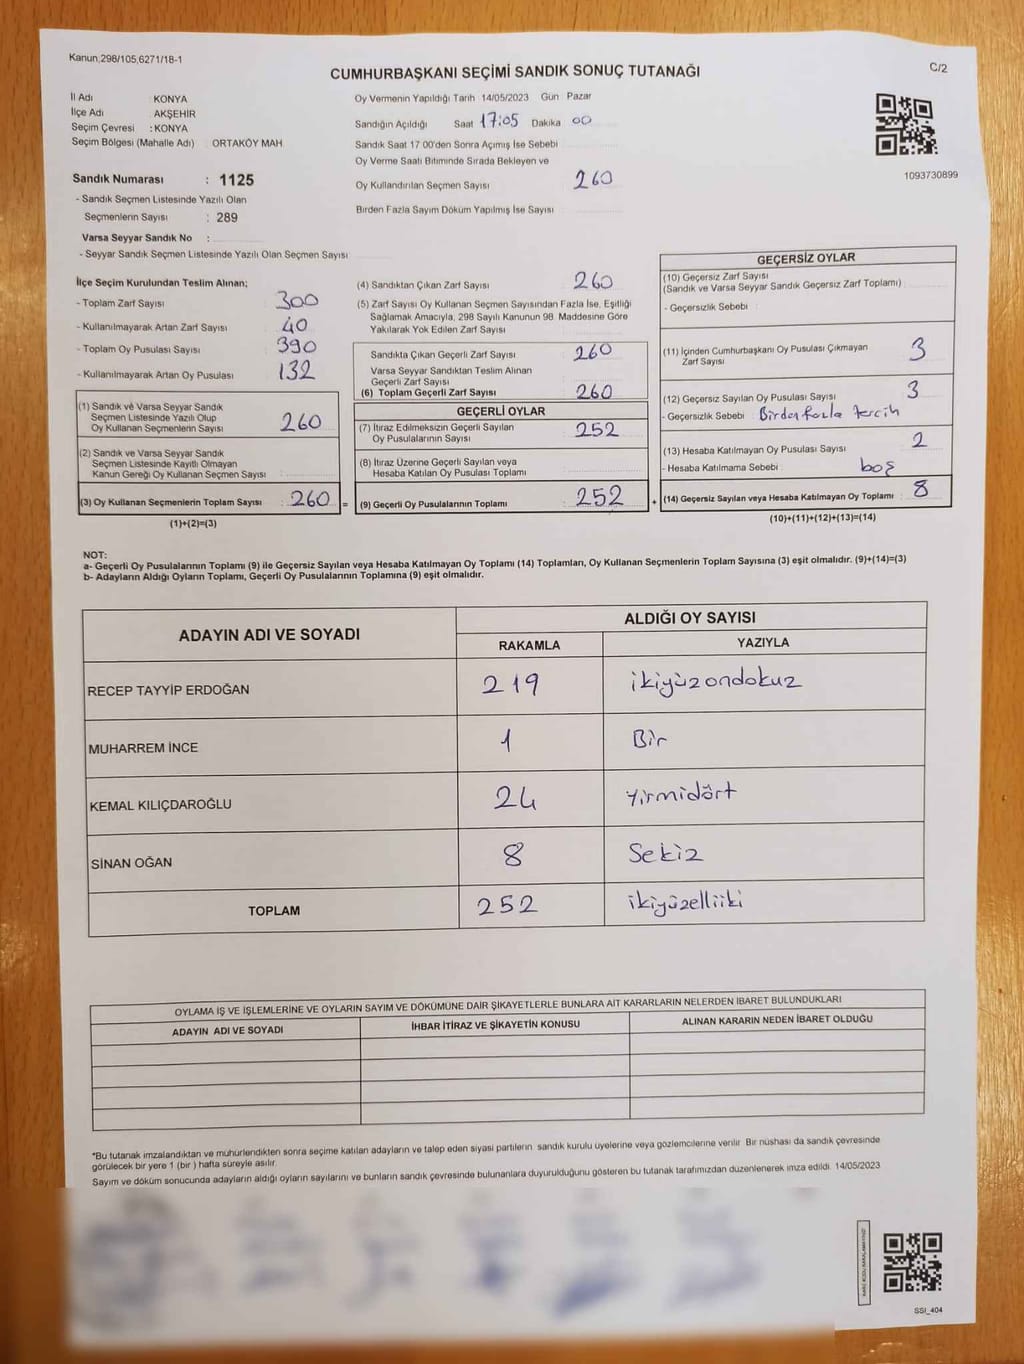 Kanun,298/105,6271/18-1
CUMHURBAŞKANI SEÇİMİ SANDIK SONUÇ TUTANAĞI
C/2
İl Adı KONYA
İlçe Adı AKŞEHİR
Seçim Çevresi : KONYA
Seçim Bölgesi (Mahalle Adı) ORTAKÖY MAH
Sandık Numarası : 1125
- Sandık Seçmen Listesinde Yazılı Olan
Seçmenlerin Sayısı : 289
Varsa Seyyar Sandık No :
- Seyyar Sandık Seçmen Listesinde Yazılı Olan Seçmen Sayısı
Oy Vermenin Yapıldığı Tarih 14/05/2023 Gün Pazar
Sandığın Açıldığı Saat 17:05 Dakika 00
Sandık Saat 17 00'den Sonra Açımış İse Sebebi
Oy Verme Saati Bitiminde Sırada Bekleyen ve
Oy Kullandırılan Seçmen Sayısı 260
Birden Fazla Sayım Döküm Yapılmış İse Sayısı
1093730899
İlçe Seçim Kurulundan Teslim Alınan;
- Toplam Zarf Sayısı 300
- Kullanılmayarak Artan Zarf Sayısı 40
- Toplam Oy Pusulası Sayısı 390
- Kullanılmayarak Artan Oy Pusulası 132
(1) Sandık ve Varsa Seyyar Sandık
Seçmen Listesinde Yazılı Olup
Oy Kullanan Seçmenlerin Sayısı 260
(2) Sandık ve Varsa Seyyar Sandık
Seçmen Listesinde Kayıtlı Olmayan
Kanun Gereği Oy Kullanan Seçmen Sayısı :
(3) Oy Kullanan Seçmenlerin Toplam Sayısı : 260 =
(1)+(2)=(3)
(4) Sandıktan Çıkan Zarf Sayısı 260
(5) Zarf Sayısı Oy Kullanan Seçmen Sayısından Fazla İse, Eşitliği
Sağlamak Amacıyla, 298 Sayılı Kanunun 98. Maddesine Göre
Yakılarak Yok Edilen Zarf Sayısı
Sandıkta Çıkan Geçerli Zarf Sayısı 260
Varsa Seyyar Sandıktan Teslim Alınan
Geçerli Zarf Sayısı
(6) Toplam Geçerli Zarf Sayısı 260
GEÇERLİ OYLAR
(7) İtiraz Edilmeksizin Geçerli Sayılan
Oy Pusulalarının Sayısı : 252
(8) İtiraz Üzerine Geçerli Sayılan veya
Hesaba Katılan Oy Pusulası Toplamı
(9) Geçerli Oy Pusulalarının Toplamı : 252 +
GEÇERSİZ OYLAR
(10) Geçersiz Zarf Sayısı
(Sandık ve Varsa Seyyar Sandık Geçersiz Zarf Toplamı) :
- Geçersizlik Sebebi :
(11) İçinden Cumhurbaşkanı Oy Pusulası Çıkmayan
Zarf Sayısı 3
(12) Geçersiz Sayılan Oy Pusulası Sayısı 3
- Geçersizlik Sebebi : Birden fazla tercih
(13) Hesaba Katılmayan Oy Pusulası Sayısı 2
- Hesaba Katılmama Sebebi : boş
(14) Geçersiz Sayılan veya Hesaba Katılmayan Oy Toplamı : 8
(10)+(11)+(12)+(13)=(14)
NOT:
a- Geçerli Oy Pusulalarının Toplamı (9) ile Geçersiz Sayılan veya Hesaba Katılmayan Oy Toplamı (14) Toplamları, Oy Kullanan Seçmenlerin Toplam Sayısına (3) eşit olmalıdır. (9)+(14)=(3)
b- Adayların Aldığı Oyların Toplamı, Geçerli Oy Pusulalarının Toplamına (9) eşit olmalıdır.
ADAYIN ADI VE SOYADI ALDIĞI OY SAYISI
RAKAMLA YAZIYLA
RECEP TAYYİP ERDOĞAN 219 ikiyüzondokuz
MUHARREM İNCE 1 Bir
KEMAL KILIÇDAROĞLU 24 Yirmidört
SİNAN OĞAN 8 Sekiz
TOPLAM 252 ikiyüzelliiki
OYLAMA İŞ VE İŞLEMLERİNE VE OYLARIN SAYIM VE DÖKÜMÜNE DAİR ŞİKAYETLERLE BUNLARA AİT KARARLARIN NELERDEN İBARET BULUNDUKLARI
ADAYIN ADI VE SOYADI İHBAR İTİRAZ VE ŞİKAYETİN KONUSU ALINAN KARARIN NEDEN İBARET OLDUĞU
*Bu tutanak imzalandıktan ve mühürlendikten sonra seçime katılan adayların ve talep eden siyasi partilerin sandık kurulu üyelerine veya gözlemcilerine verilir Bir nüshası da sandık çevresinde
görülecek bir yere 1 (bir ) hafta süreyle asılır
Sayım ve döküm sonucunda adayların aldığı oyların sayılarını ve bunların sandık çevresinde bulunanlara duyurulduğunu gösteren bu tutanak tarafımızdan düzenlenerek imza edildi 14/05/2023
SSI_404